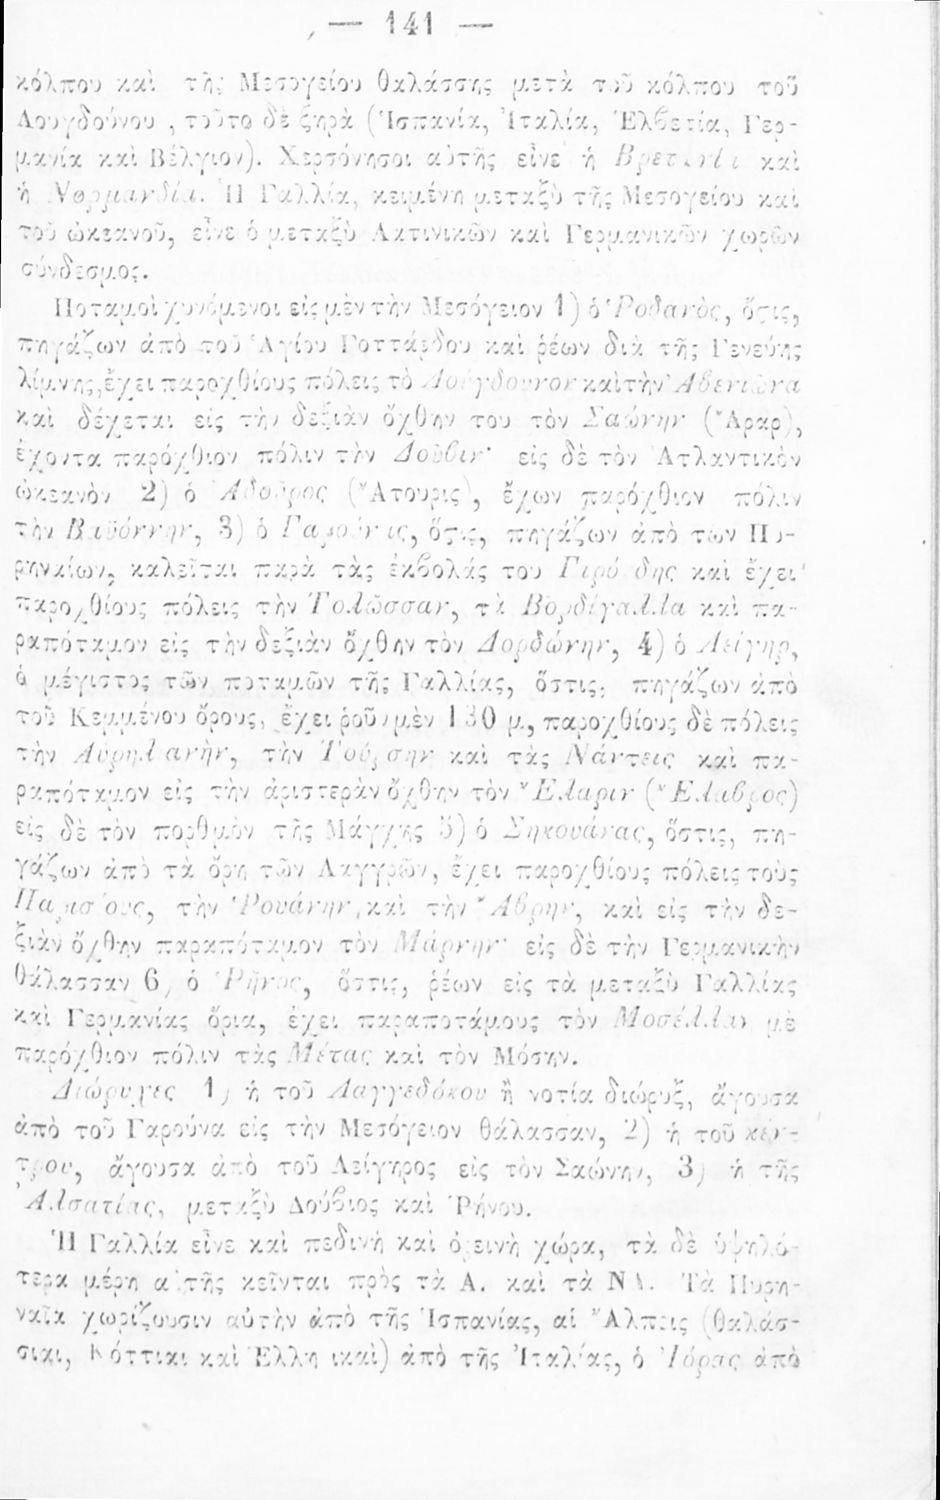 — 141 —
κόλπου καὶ τῆς Μεσογείου θαλάσσης μετὰ τοῦ κόλπου τοῦ
Λουγδούνου , τοῦτο δὲ ξηρὰ (Ἱσπανία, Ἰταλία, Ἑλβετία, Γερ-
μανία καὶ Βέλγιον). Χερσόνησοι αὐτῆς εἶνε ἡ Βρετανία καὶ
ἡ Νορμανδία. Ἡ Γαλλία, κειμένη μεταξὺ τῆς Μεσογείου καὶ
τοῦ ὠκεανοῦ, εἶνε ὁ μεταξὺ Λατινικῶν καὶ Γερμανικῶν χωρῶν
σύνδεσμος.
Ποταμοὶ χυνόμενοι εἰς μὲν τὴν Μεσόγειον 1) ὁ Ῥοδανὸς, ὅστις,
πηγάζων ἀπὸ τοῦ Ἁγίου Γοττάρδου καὶ ῥέων διὰ τῆς Γενεύης
λίμνης, ἔχει παροχθίους πόλεις τὸ Λούγδουνον καὶ τὴν Ἀβενιῶνα
καὶ δέχεται εἰς τὴν δεξιὰν ὄχθην του τὸν Σαώνην (Ἄραρ),
ἔχοντα παρόχθιον πόλιν τὴν Δούβιν· εἰς δὲ τὸν Ἀτλαντικὸν
ὠκεανὸν 2) ὁ Ἀδοῦρος (Ἄτουρις), ἔχων παρόχθιον πόλιν
τὴν Βαϋόννην, 3) ὁ Γαρούνας, ὅστις, πηγάζων ἀπὸ τῶν Πυ-
ρηναίων, καλεῖται παρὰ τὰς ἐκβολάς του Γιρούνδης καὶ ἔχει
παροχθίους πόλεις τὴν Τολῶσσαν, τὰ Βορδίγαλλα καὶ πα-
ραπόταμον εἰς τὴν δεξιὰν ὄχθην τὸν Δορδώνην, 4) ὁ Λείγηρ,
ὁ μέγιστος τῶν ποταμῶν τῆς Γαλλίας, ὅστις, πηγάζων ἀπὸ
τοῦ Κεμμένου ὄρους, ἔχει ῥοῦν μὲν 130 μ., παροχθίους δὲ πόλεις
τὴν Αὐρηλιανὴν, τὴν Τούρσην καὶ τὰς Νάντεις καὶ πα-
ραπόταμον εἰς τὴν ἀριστερὰν ὄχθην τὸν Ἔλαριν (Ἔλαβρος)
εἰς δὲ τὸν πορθμὸν τῆς Μάγχης 5) ὁ Σηκουάνας, ὅστις, πη-
γάζων ἀπὸ τὰ ὄρη τῶν Λαγγρῶν, ἔχει παροχθίους πόλεις τοὺς
Παρισίους, τὴν Ῥουάνην, καὶ τὴν Ἄβρην, καὶ εἰς τὴν δε-
ξιὰν ὄχθην παραπόταμον τὸν Μάρνην· εἰς δὲ τὴν Γερμανικὴν
θάλασσαν 6) ὁ Ῥῆνος, ὅστις, ῥέων εἰς τὰ μεταξὺ Γαλλίας
καὶ Γερμανίας ὅρια, ἔχει παραποτάμους τὸν Μοσέλλαν μὲ
παρόχθιον πόλιν τὰς Μέτας καὶ τὸν Μόσην.
Διώρυγες 1) ἡ τοῦ Λαγγεδόκου ἢ νοτία διώρυξ, ἄγουσα
ἀπὸ τοῦ Γαρούνα εἰς τὴν Μεσόγειον θάλασσαν, 2) ἡ τοῦ κέν-
τρου, ἄγουσα ἀπὸ τοῦ Λείγηρος εἰς τὸν Σαώνην, 3) ἡ τῆς
Ἀλσατίας, μεταξὺ Δούβιος καὶ Ῥήνου.
Ἡ Γαλλία εἶνε καὶ πεδινὴ καὶ ὀρεινὴ χώρα, τὰ δὲ ὑψηλό-
τερα μέρη αὐτῆς κεῖνται πρὸς τὰ Α. καὶ τὰ ΝΑ. Τὰ Πυρη-
ναῖα χωρίζουσιν αὐτὴν ἀπὸ τῆς Ἱσπανίας, αἱ Ἄλπεις (θαλάσ-
σιαι, Κόττιαι καὶ Ἑλληνικαὶ) ἀπὸ τῆς Ἰταλίας, ὁ Ἰόρας ἀπὸ